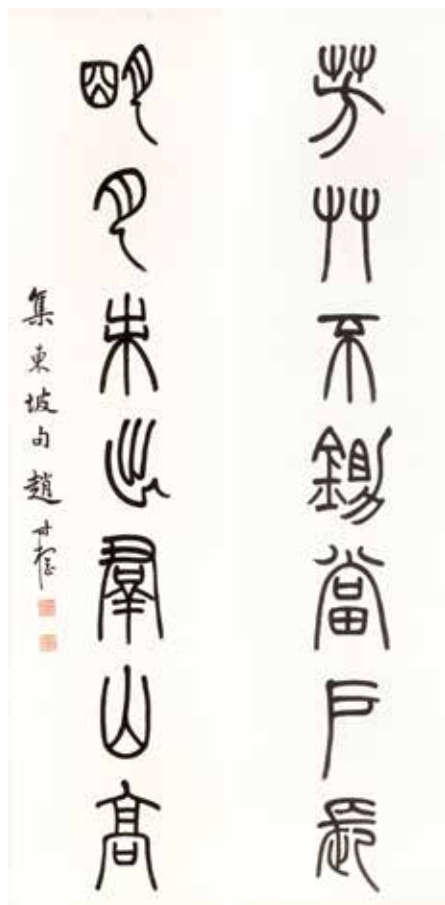 芳艸不鋤當戶長
朙月未出羣山高
集東坡句趙